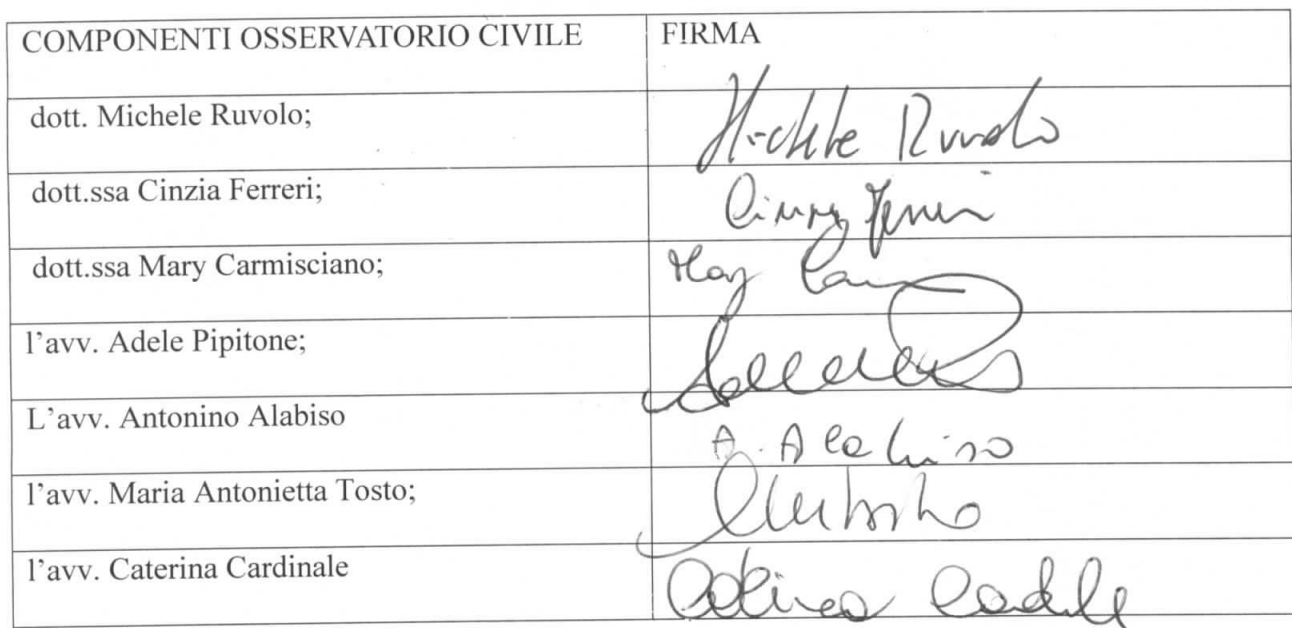 COMPONENTI OSSERVATORIO CIVILE FIRMA
dott. Michele Ruvolo; Michele Ruvolo
dott.ssa Cinzia Ferreri;
dott.ssa Mary Carmisciano; Mary
l'avv. Adele Pipitone;
L'avv. Antonino Alabiso A. Alabiso
l'avv. Maria Antonietta Tosto;
l'avv. Caterina Cardinale